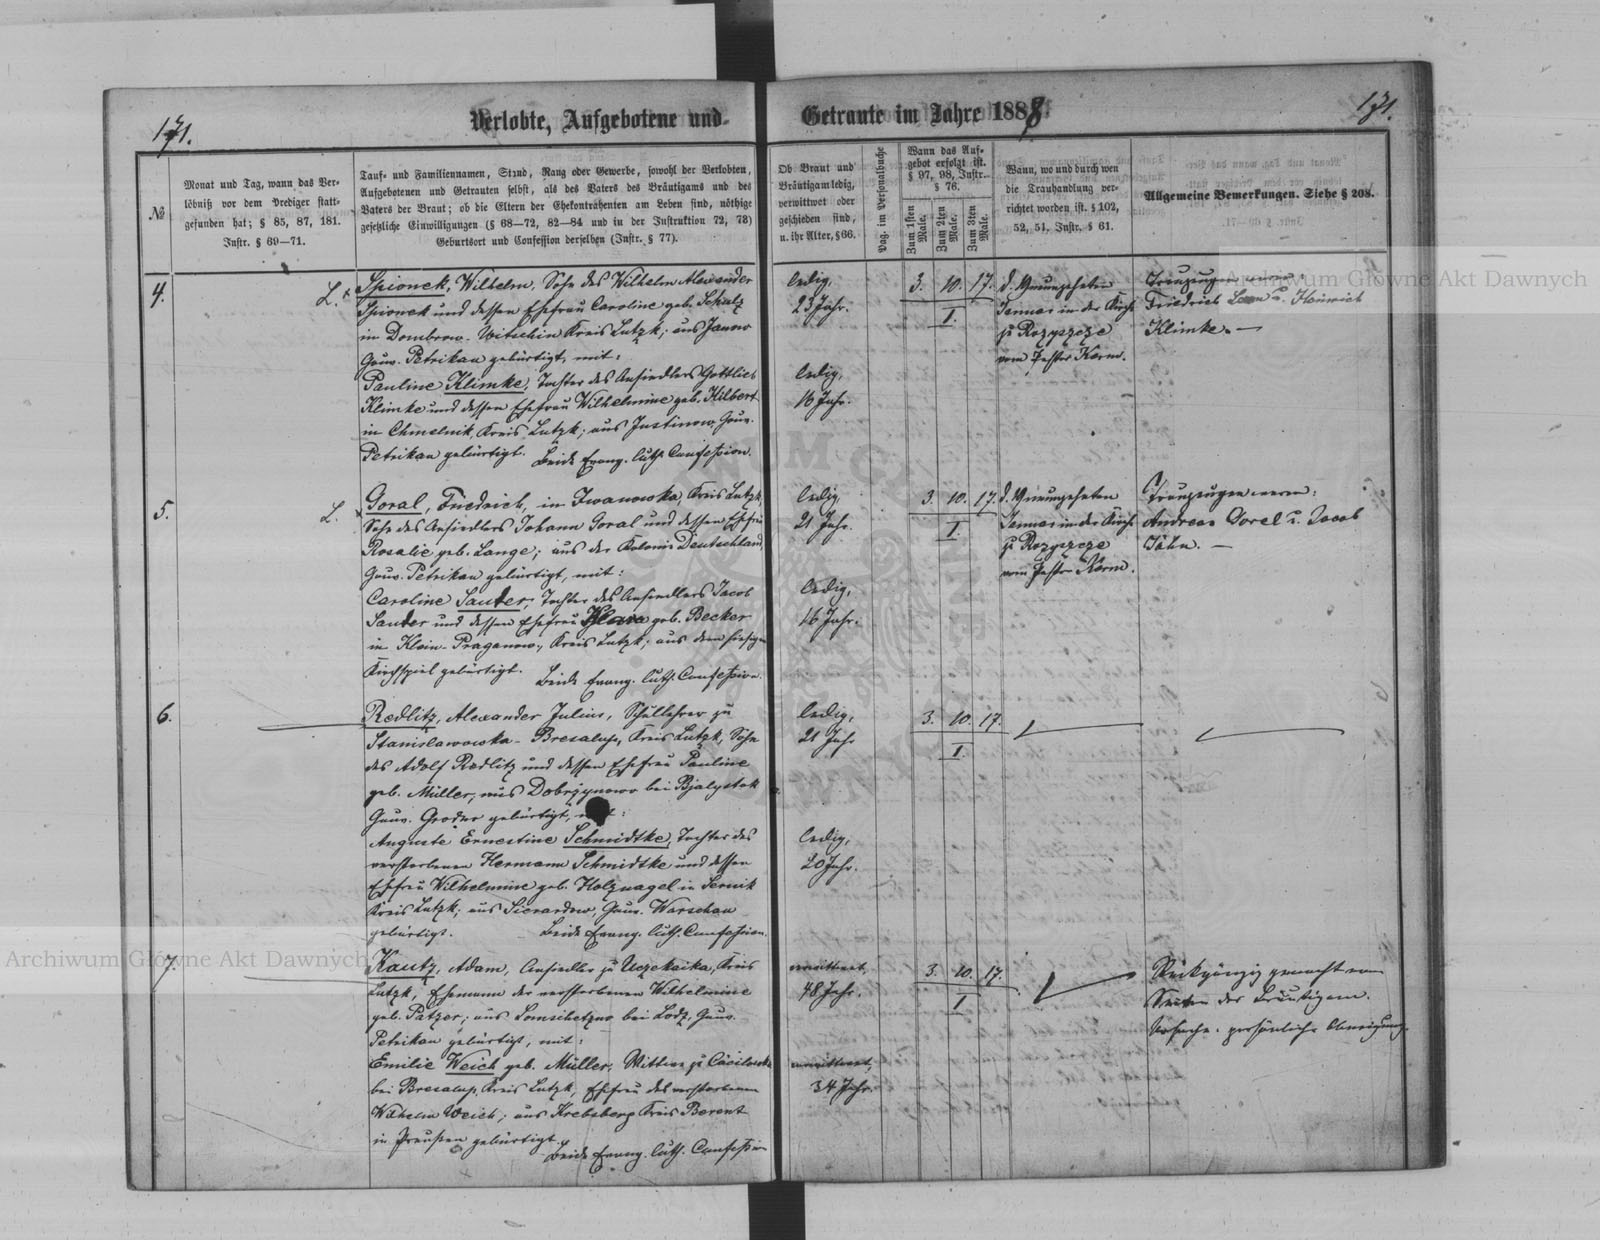 171.
Verlobte, Aufgebotene und
Getraute im Jahre 1888
171.
№
Monat und Tag, wann das Ver-
löbniß vor dem Prediger statt-
gefunden hat; § 85, 87, 181.
Instr. § 69—71.
Tauf- und Familiennamen, Stand, Rang oder Gewerbe, sowohl der Verlobten,
Aufgebotenen und Getrauten selbst, als des Vaters des Bräutigams und des
Vaters der Braut; ob die Eltern der Ehekontrahenten am Leben sind, nöthige
gesetzliche Einwilligungen (§ 68—72, 82—84 und in der Instruktion 72, 73)
Geburtsort und Confession derselben (Instr. § 77).
Ob Braut und
Bräutigam ledig,
verwittwet oder
geschieden sind,
u. ihr Alter, § 66.
Pag. im Personalbuche
Wann das Auf-
gebot erfolgt ist.
§ 97, 98, Instr.
§ 76.
Zum 1sten Male.
Zum 2ten Male.
Zum 3ten Male.
Wann, wo und durch wen
die Trauhandlung ver-
richtet worden ist. § 102,
52, 51, Instr. § 61.
Allgemeine Bemerkungen. Siehe § 208.
4.
L.
Spionek, Wilhelm, Sohn des Wilhelm Alexander
Spionek und dessen Ehefrau Caroline geb. Schulz
in Dombrow-Witschin Kreis Lutzk; aus Janow
Gouv. Petrikau gebürtigt, mit:
Pauline Klimke, Tochter des Ansiedlers Gottlieb
Klimke und dessen Ehefrau Wilhelmine geb. Hilbert
in Chmelnik, Kreis Lutzk; aus Justinow, Gouv.
Petrikau gebürtigt. Beide Evang. Luth. Confession.
ledig,
23 Jahr.
ledig,
16 Jahr.
3. 10. 17.
I.
d.
Januar in der Kirche
zu Rozyszcze
vom Pastor Kerm.
Trauzeugen waren:
Friedrich u. Heinrich
Klimke. —
5.
L.
Goral, Friedrich, in Iwanowka, Kreis Lutzk,
Sohn des Ansiedlers Johann Goral und dessen Ehefrau
Rosalie geb. Lange; aus der Kolonie Deutschland,
Gouv. Petrikau gebürtigt, mit:
Caroline Sauter, Tochter des Ansiedlers Jacob
Sauter und dessen Ehefrau geb. Becker
in Klein-Praganow, Kreis Lutzk; aus dem hiesigen
Kirchspiel gebürtigt. Beide Evang. Luth. Confession.
ledig,
21 Jahr.
ledig,
16 Jahr.
3. 10. 17.
I.
d.
Januar in der Kirche
zu Rozyszcze
vom Pastor Kerm.
Trauzeugen waren:
Andreas Gorel u. Jacob
Jähn. —
6.
Redlitz, Alexander Julius, Schullehrer zu
Stanislawowka-Bresalup, Kreis Lutzk, Sohn
des Adolf Redlitz und dessen Ehefrau Pauline
geb. Müller, aus Dobrzynowo bei Bjalystok
Gouv. Grodno gebürtigt, mit:
Auguste Ernestine Schmidtke, Tochter des
verstorbenen Hermann Schmidtke und dessen
Ehefrau Wilhelmine geb. Holznagel in Sernik
Kreis Lutzk; aus Sierardow, Gouv. Warschau
gebürtigt. Beide Evang. Luth. Confession.
ledig,
21 Jahr
ledig,
20 Jahr.
3. 10. 17.
I.
7.
Kautz, Adam, Ansiedler zu Uczekaika, Kreis
Lutzk, Ehemann der verstorbenen Wilhelmine
geb. Patzer; aus bei Lodz, Gouv.
Petrikau gebürtigt, mit:
Emilie Weich geb. Müller, Wittwe zu Cäcilowka
bei Bresalup, Kreis Lutzk, Ehefrau des verstorbenen
Wilhelm Weich; aus Krebsberg Kreis Berent
in Preußen gebürtigt.
Beide Evang. Luth. Confession
verwittwet,
48 Jahr.
verwittwet,
34 Jahr.
3. 10. 17.
I.
Rückgängig gemacht von
Seiten des Bräutigam.
Ursache: persönliche Abneigung.
Archiwum Główne Akt Dawnych
Archiwum Główne Akt Dawnych